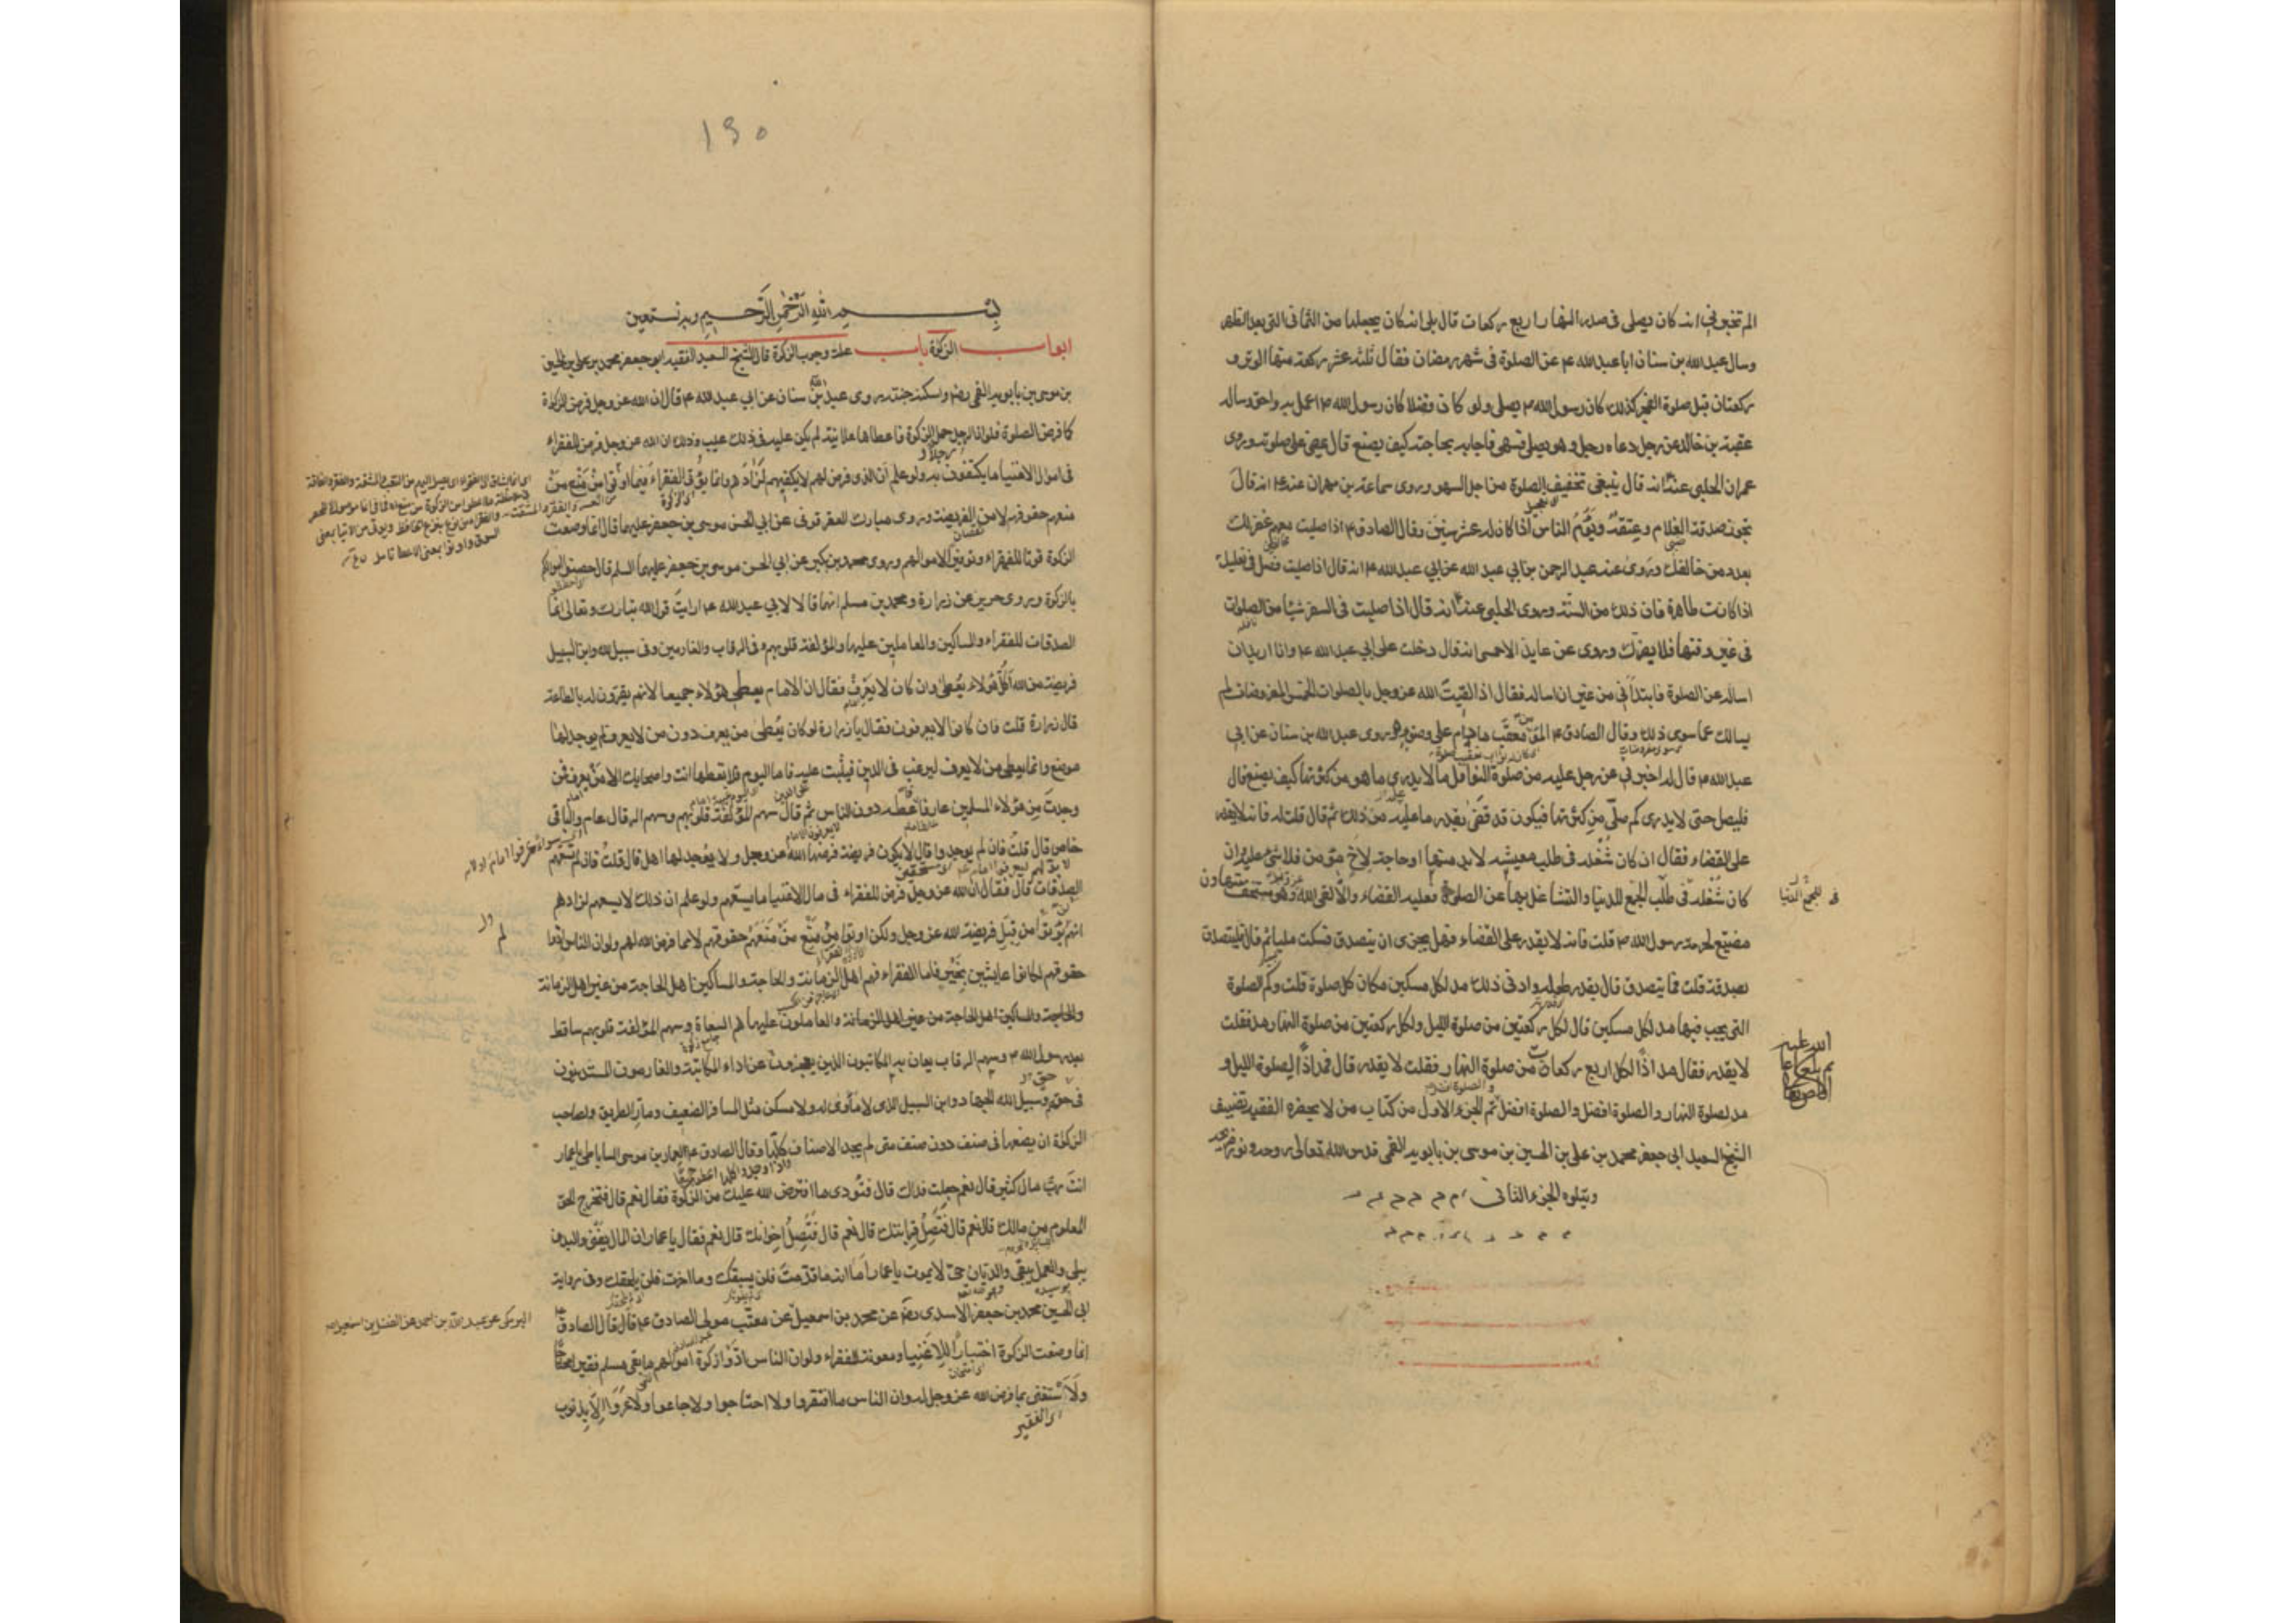 الم تخبرني انه كان يصلى فى صدر النهار اربع ركعات قال بلى انه كان يجعلها من الثمانى التى بعد الظهر
وسال عبد الله بن سنان ابا عبد الله ع عن الصلوة فى شهر رمضان فقال ثلث عشر ركعة منها الوتر و
ركعتان قبل صلوة الفجر كذلك كان رسول الله ص يصلى ولو كان فضلا كان رسول الله ص اعمل به واحق وساله
عقبة بن خالد عن رجل دعاه رجل وهو يصلى فسهى فاجابه بحاجته كيف يصنع قال يمضى على صلوته وروى
عمران الحلبى عنه انه قال ينبغى تخفيف الصلوة من اجل السهو وروى سماعة بن مهران عنه ع انه قال
تجوز صدقة الغلام وعتقه ويؤم الناس اذا كان له عشر سنين وقال الصادق ع اذا صليت معهم غفر لك
بعدد من خالفك وروى عنه عبد الرحمن بن ابي عبد الله عن ابي عبد الله ع انه قال اذا صليت فصل فى نعليك
اذا كانت طاهرة فان ذلك من السنة وروى الحلبى عنه انه قال اذا صليت فى السفر شيئا من الصلوات
فى غير وقتها فلا يضرك وروى عن عايذ الاحمسى انه قال دخلت على ابي عبد الله ع وانا اريد ان
اساله عن الصلوة فابتدأنى من غير ان اساله فقال اذا لقيت الله عز وجل بالصلوات الخمس المفروضات لم
يسالك عما سوى ذلك وقال الصادق ع المؤمن معقب ما دام على وضوئه وروى عبد الله بن سنان عن ابي
عبد الله ع قال له اخبرني عن رجل عليه من صلوة النوافل مالا يدرى ما هو من كثرتها كيف يصنع قال
فليصل حتى لا يدرى كم صلى من كثرتها فيكون قد قضى بقدر ما عليه من ذلك ثم قال قلت له فانه لا يقدر
على القضاء فقال ان كان شغله فى طلب معيشة لا بد منها او حاجة لاخ مؤمن فلا شئ عليه وان
كان شغله فى طلب الجمع للدنيا والتشاغل بها عن الصلوة فعليه القضاء والا لقى الله وهو مستخف متهاون
مضيع لحرمة رسول الله ص قلت فانه لا يقدر على القضاء فهل يجزى ان يتصدق فسكت مليا ثم قال فليتصدق
بصدقة قلت فما يتصدق قال بقدر طوله وادنى ذلك مد لكل مسكين مكان كل صلوة قلت وكم الصلوة
التى يجب فيها مد لكل مسكين قال لكل ركعتين من صلوة الليل ولكل ركعتين من صلوة النهار مد فقلت
لا يقدر فقال مد اذا لكل اربع ركعات من صلوة النهار فقلت لا يقدر قال فمد اذا لصلوة الليل و
مد لصلوة النهار والصلوة افضل والصلوة افضل تم الجزء الاول من كتاب من لا يحضره الفقيه تصنيف
الشيخ السعيد ابى جعفر محمد بن على بن الحسين بن موسى بن بابويه القمى قدس الله تعالى روحه ونور ضريحه
ويتلوه الجزء الثانى
١٩٠
بسم الله الرحمن الرحيم وبه نستعين
ابواب الزكوة باب علة وجوب الزكوة قال الشيخ السعيد الفقيه ابو جعفر محمد بن على بن الحسين
بن موسى بن بابويه القمى رضه واسكنه جنته روى عبد الله بن سنان عن ابي عبد الله ع قال ان الله عز وجل فرض الزكوة
كما فرض الصلوة فلو ان الرجل حمل الزكوة فاعطاها علانية لم يكن عليه فى ذلك عيب وذلك ان الله عز وجل فرض للفقراء
فى اموال الاغنيا ما يكتفون به ولو علم ان الذى فرض لهم لا يكفيهم لزادهم وانما يؤتى الفقراء فيما اوتوا من منع من
منعهم حقوقهم لا من الفريضة وروى مبارك العقرقوفى عن ابي الحسن موسى بن جعفر عليهما قال انما وضعت
الزكوة قوتا للفقراء وتوفيرا لاموالهم وروى محمد بن بكير عن ابي الحسن موسى بن جعفر عليهما السلم قال حصنوا اموالكم
بالزكوة وروى حريز عن زرارة ومحمد بن مسلم انهما قالا لابي عبد الله ع ارايت قول الله تبارك وتعالى انما
الصدقات للفقراء والمساكين والعاملين عليها والمؤلفة قلوبهم وفى الرقاب والغارمين وفى سبيل الله وابن السبيل
فريضة من الله أكل هؤلاء يعطى وان كان لا يعرف فقال ان الامام يعطى هؤلاء جميعا لانهم يقرون له بالطاعة
قال زرارة قلت فان كانوا لا يعرفون فقال يا زرارة لو كان يعطى من يعرف دون من لا يعرف لم يوجد لها
موضع وانما يعطى من لا يعرف ليرغب فى الدين فيثبت عليه فاما اليوم فلا تعطها انت واصحابك الا من يعرف فمن
وجدت من هؤلاء المسلمين عارفا فاعطه دون الناس ثم قال سهم المؤلفة قلوبهم وسهم الرقاب عام والباقى
خاص قال قلت فان لم يوجدوا قال لا يكون فريضة فرضها الله عز وجل ولا يوجد لها اهل قال قلت فان لم تسعهم
الصدقات قال فقال ان الله عز وجل فرض للفقراء فى مال الاغنيا ما يسعهم ولو علم ان ذلك لا يسعهم لزادهم
انهم لم يؤتوا من قبل فريضة الله عز وجل ولكن اوتوا من منع من منعهم حقوقهم لا مما فرض الله لهم ولو ان الناس ادوا
حقوقهم لكانوا عايشين بخير فاما الفقراء فهم اهل الزمانة والحاجة والمساكين اهل الحاجة من غير اهل الزمانة
والحاجة والمساكين اهل الحاجة من غير اهل الزمانة والعاملون عليها هم السعاة وسهم المؤلفة قلوبهم ساقط
بعد رسول الله ص وسهم الرقاب يعان به المكاتبون الذين يعجزون عن اداء المكاتبة والغارمون المستدينون
فى حق وسبيل الله الجهاد وابن السبيل الذى لا مأوى له ولا مسكن مثل المسافر الضعيف ومار الطريق ولصاحب
الزكوة ان يضعها فى صنف دون صنف متى لم يجد الاصناف كلها وقال الصادق ع لعمار بن موسى الساباطى يا عمار
انت رب مال كثير قال نعم جعلت فداك قال فتؤدى ما افترض الله عليك من الزكوة فقال نعم قال فتخرج الحق
المعلوم من مالك قال نعم قال فتصل قرابتك قال نعم قال فتصل اخوانك قال نعم فقال يا عمار ان المال يفنى والبدن
يبلى والعمل يبقى والديان حى لا يموت يا عمار اما انه ما قدمت فلن يسبقك وما اخرت فلن يلحقك وفى رواية
ابى الحسين محمد بن جعفر الاسدى رضه عن محمد بن اسمعيل عن معتب مولى الصادق ع قال قال الصادق ع
انما وضعت الزكوة اختبارا للاغنيا ومعونة للفقراء ولو ان الناس ادوا زكوة اموالهم ما بقى مسلم فقيرا محتاجا
ولاستغنى بما فرض الله عز وجل له وان الناس ما افتقروا ولا احتاجوا ولا جاعوا ولا عروا الا بذنوب
اى الفقير
البرمكى عن عبد الله بن احمد عن الفضل بن اسمعيل